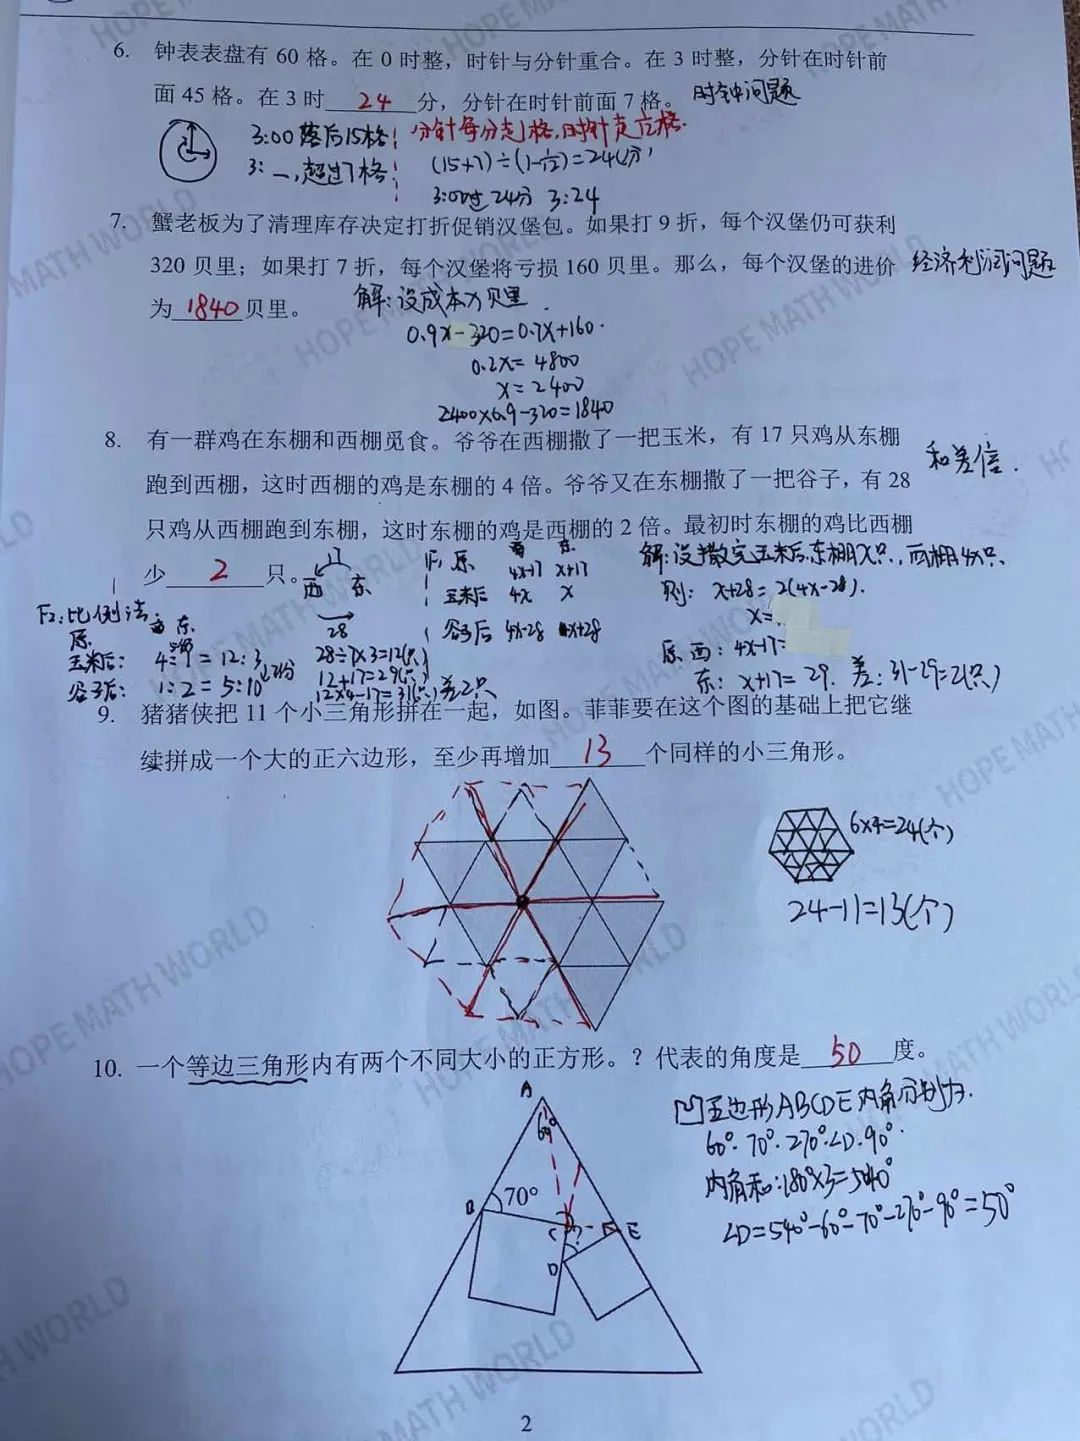 6. 钟表表盘有 60 格。在 0 时整，时针与分针重合。在 3 时整，分针在时针前
面 45 格。在 3 时 24 分，分针在时针前面 7 格。 时钟问题
3:00 落后15格 分针每分走1格,时针走1/12格.
3: —,超过7格 (15+7)÷(1-1/12)=24(分)
3:00过24分 3:24
7. 蟹老板为了清理库存决定打折促销汉堡包。如果打 9 折，每个汉堡仍可获利
320 贝里；如果打 7 折，每个汉堡将亏损 160 贝里。那么，每个汉堡的进价 经济利润问题
为 1840 贝里。 解:设成本为 贝里
0.9x-320=0.7x+160.
0.2x=4800
x=2400
2400×0.9-320=1840
8. 有一群鸡在东棚和西棚觅食。爷爷在西棚撒了一把玉米，有 17 只鸡从东棚
跑到西棚，这时西棚的鸡是东棚的 4 倍。爷爷又在东棚撒了一把谷子，有 28 和差倍.
只鸡从西棚跑到东棚，这时东棚的鸡是西棚的 2 倍。最初时东棚的鸡比西棚
少 2 只。
17
西 东
28
F1: 西 东
原 4x-17 x+17
玉米后 4x x
谷子后 4x-28 x+28
解:设撒完玉米后,东棚x只,西棚4x只.
则: x+28=2(4x-28).
x=
原西: 4x-17=
东: x+17=29. 差: 31-29=2(只)
F2:比例法: 西 东
原
玉米后: 4:1=12:3
谷子后: 1:2=5:10
28÷7×3=12(只)
12+17=29(只)
12×4-17=31(只) 差2只
9. 猪猪侠把 11 个小三角形拼在一起，如图。菲菲要在这个图的基础上把它继
续拼成一个大的正六边形，至少再增加 13 个同样的小三角形。
6×4=24(个)
24-11=13(个)
10. 一个等边三角形内有两个不同大小的正方形。？代表的角度是 50 度。
A
60°
B 70°
C ? E
D
凹五边形ABCDE内角分别为.
60°.70°.270°.∠D.90°.
内角和:180°×3=540°
∠D=540°-60°-70°-270°-90°=50°
HOPE MATH WORLD
HOPE MATH WORLD
HOPE MATH WORLD
HOPE MATH WORLD
HOPE MATH WORLD
HOPE MATH WORLD
2